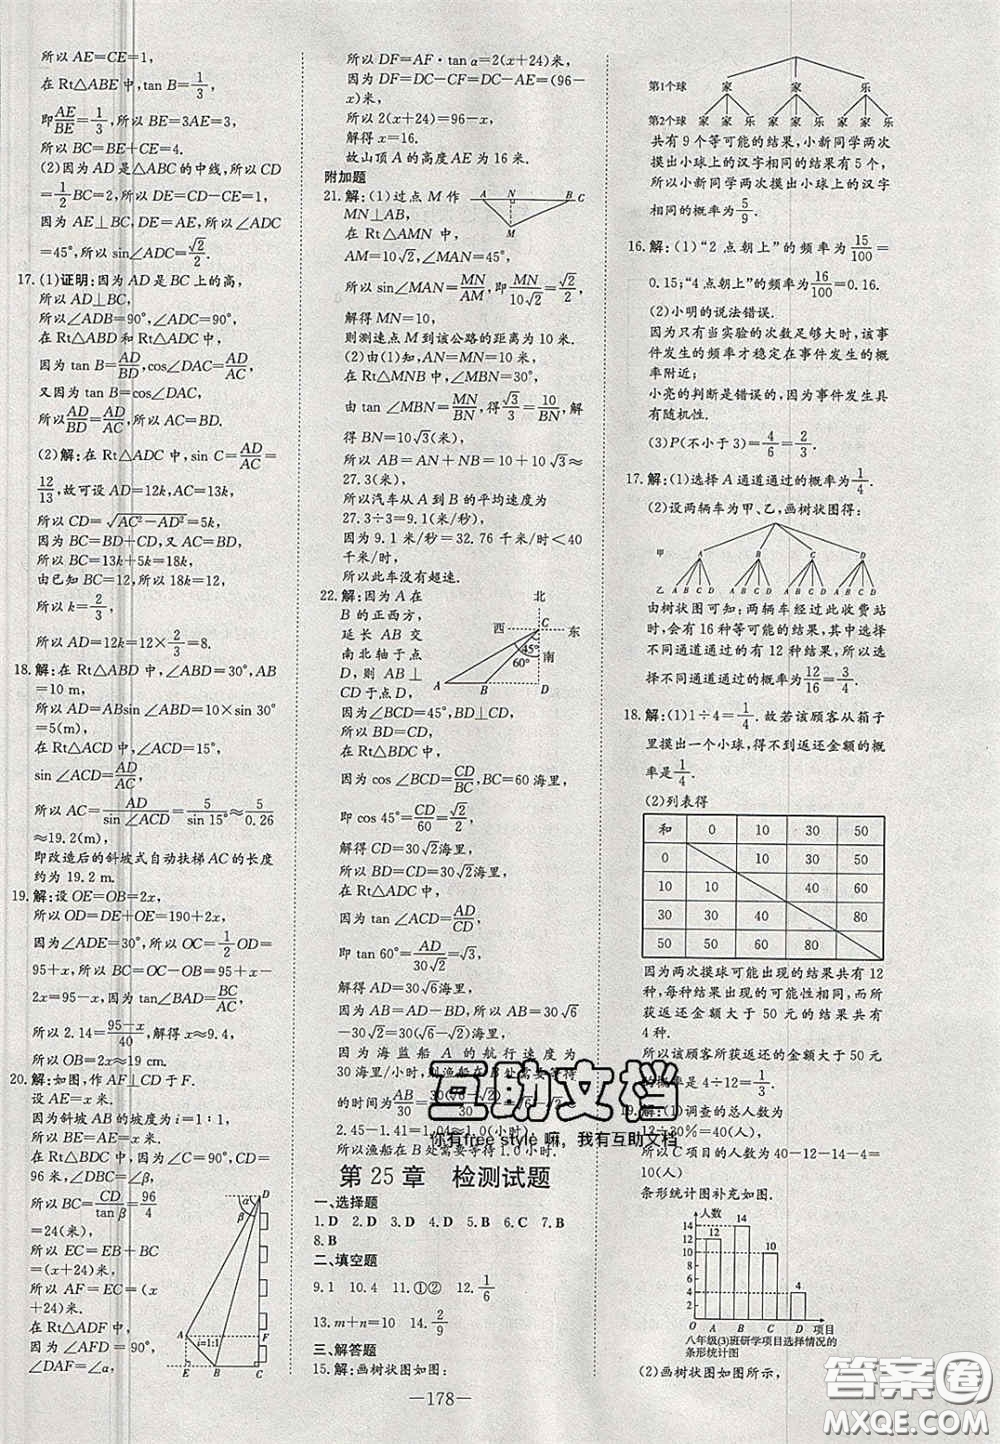 所以 AE=CE=1,
在 Rt△ABE 中,tan B=1/3,
即AE/BE=1/3,所以 BE=3AE=3,
所以 BC=BE+CE=4.
(2)因为 AD 是△ABC 的中线,所以 CD
=1/2BC=2,所以 DE=CD-CE=1,
因为 AE⊥BC,DE=AE,所以∠ADC
=45°,所以 sin∠ADC=√2/2.
17.(1)证明:因为 AD 是 BC 上的高,
所以 AD⊥BC,
所以∠ADB=90°,∠ADC=90°,
在 Rt△ABD 和 Rt△ADC 中,
因为 tan B=AD/BD,cos∠DAC=AD/AC,
又因为 tan B=cos∠DAC,
所以AD/BD=AD/AC,所以 AC=BD.
(2)解:在 Rt△ADC 中,sin C=AD/AC=
12/13,故可设 AD=12k,AC=13k,
所以 CD=√(AC²-AD²)=5k,
因为 BC=BD+CD,又 AC=BD,
所以 BC=13k+5k=18k,
由已知 BC=12,所以 18k=12,
所以 k=2/3,
所以 AD=12k=12×2/3=8.
18.解:在 Rt△ABD 中,∠ABD=30°,AB
=10 m,
所以 AD=ABsin∠ABD=10×sin 30°
=5(m),
在 Rt△ACD 中,∠ACD=15°,
sin∠ACD=AD/AC,
所以 AC=AD/sin∠ACD=5/sin 15°≈5/0.26
≈19.2(m),
即改造后的斜坡式自动扶梯 AC 的长度
约为 19.2 m.
19.解:设 OE=OB=2x,
所以 OD=DE+OE=190+2x,
因为∠ADE=30°,所以 OC=1/2OD=
95+x,所以 BC=OC-OB=95+x-
2x=95-x,因为 tan∠BAD=BC/AC,
所以 2.14=(95-x)/40,解得 x≈9.4,
所以 OB=2x≈19 cm.
20.解:如图,作 AF⊥CD 于 F.
设 AE=x 米.
因为斜坡 AB 的坡度为 i=1:1,
所以 BE=AE=x 米.
在 Rt△BDC 中,
因为∠C=90°,CD
=96 米,∠β=
所以 BC=CD/tanβ=96/4
=24(米),
所以 EC=EB+BC
=(x+24)米,
所以 AF=EC=(x
+24)米.
在 Rt△ADF 中,
因为∠AFD=90°,
∠DAF=∠α,
D
α
β
A
F
i=1:1
E B C
所以 DF=AF·tan α=2(x+24)米,
因为 DF=DC-CF=DC-AE=(96-
x)米,
所以 2(x+24)=96-x,
解得 x=16.
故山顶 A 的高度 AE 为 16 米.
附加题
21.解:(1)过点 M 作
MN⊥AB,
在 Rt△AMN 中,
AM=10√2,∠MAN=45°,
A N B C
M
所以 sin∠MAN=MN/AM,即MN/10√2=√2/2,
解得 MN=10,
则测速点 M 到该公路的距离为 10 米.
(2)由(1)知,AN=MN=10 米,
在 Rt△MNB 中,∠MBN=30°,
由 tan∠MBN=MN/BN,得√3/3=10/BN,解
得 BN=10√3(米),
所以 AB=AN+NB=10+10√3≈
27.3(米),
所以汽车从 A 到 B 的平均速度为
27.3÷3=9.1(米/秒),
因为 9.1 米/秒=32.76 千米/时<40
千米/时,
所以此车没有超速.
22.解:因为 A 在
B 的正西方,
延长 AB 交
南北轴于点
D,则 AB⊥
CD 于点 D,
北
西
C
东
45°
60°
南
A B D
因为∠BCD=45°,BD⊥CD,
所以 BD=CD,
在 Rt△BDC 中,
因为 cos∠BCD=CD/BC,BC=60 海里,
即 cos 45°=CD/60=√2/2,
解得 CD=30√2海里,
所以 BD=CD=30√2海里,
在 Rt△ADC 中,
因为 tan∠ACD=AD/CD,
即 tan 60°=AD/30√2=√3,
解得 AD=30√6海里,
因为 AB=AD-BD,所以 AB=30√6
-30√2=30(√6-√2)海里,
因为海监船 A 的航行速度为
30 海里/时,则渔船在 B 处需要等待
的时间为AB/30=30(√6-√2)/30=√6-√2≈
2.45-1.41=1.04≈1.0(小时),
所以渔船在 B 处需要等待 1.0 小时.
第 25 章 检测试题
一、选择题
1.D 2.D 3.D 4.D 5.B 6.C 7.B
8.B
二、填空题
9.1 10.4 11.①② 12.1/6
13.m+n=10 14.2/9
三、解答题
15.解:画树状图如图:
—178—
第1个球 家 家 乐
第2个球 家 家 乐 家 家 乐 家 家 乐
共有 9 个等可能的结果,小新同学两次
摸出小球上的汉字相同的结果有 5 个,
所以小新同学两次摸出小球上的汉字
相同的概率为5/9.
16.解:(1)“2 点朝上”的频率为15/100=
0.15;“4 点朝上”的频率为16/100=0.16.
(2)小明的说法错误.
因为只有当实验的次数足够大时,该事
件发生的频率才稳定在事件发生的概
率附近;
小亮的判断是错误的,因为事件发生具
有随机性.
(3)P(不小于 3)=4/6=2/3.
17.解:(1)选择 A 通道通过的概率为1/4.
(2)设两辆车为甲、乙,画树状图得:
甲 A B C D
乙 A B C D A B C D A B C D A B C D
由树状图可知:两辆车经过此收费站
时,会有 16 种等可能的结果,其中选择
不同通道通过的有 12 种结果,所以选
择不同通道通过的概率为12/16=3/4.
18.解:(1)1÷4=1/4. 故若该顾客从箱子
里摸出一个小球,则返还金额的概
率是1/4.
(2)列表得
和 0 10 30 50
0 10 30 50
10 10 40 60
30 30 40 80
50 50 60 80
因为两次摸球可能出现的结果共有 12
种,每种结果出现的可能性相同,而所
获返还金额大于 50 元的结果共有
4 种.
所以该顾客所获返还的金额大于 50 元
的概率是 4÷12=1/3.
19.解:(1)调查的总人数为
12÷30%=40(人),
所以 C 项目的人数为 40-12-14-4=
10(人)
条形统计图补充如图.
人数
14
12
10
8
6
4
2
0
12
14
10
4
A B C D 项目
八年级(3)班研学项目选择情况的
条形统计图
(2)画树状图如图:
互助文档
你有free style 嘛,我有互助文档
答案圈
MXQE.COM